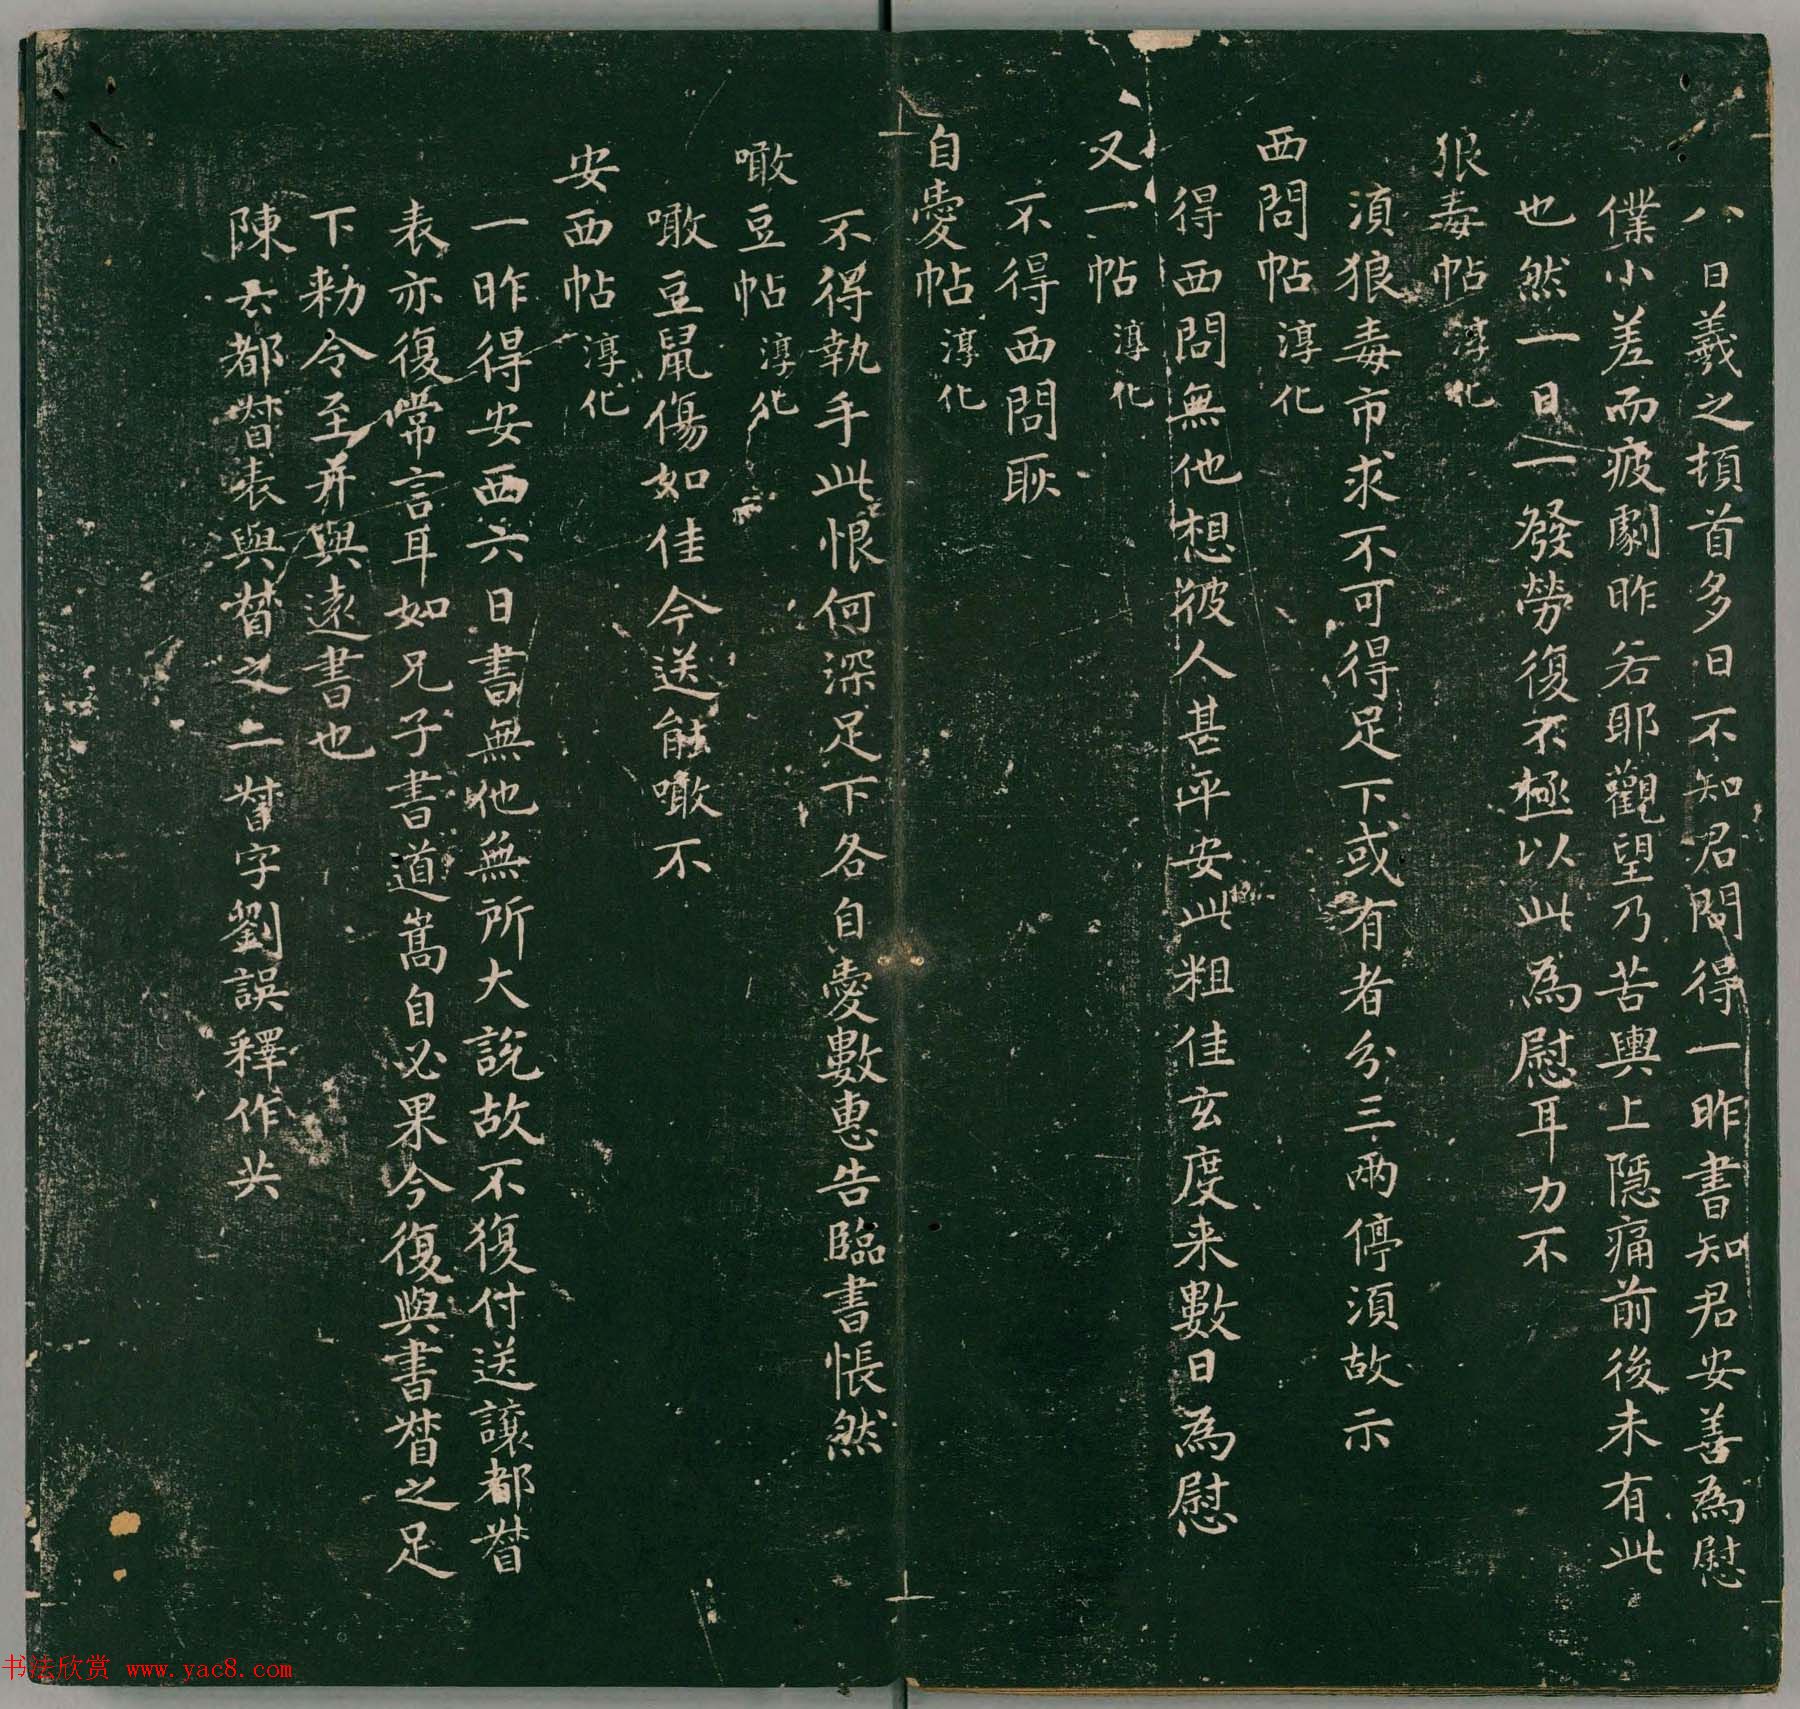 八日羲之頓首多日不知君問得一昨書知君安善為慰
僕小差而疲劇昨若耶觀望乃苦輿上隱痛前後未有此
也然一日一發勞復不極以此為慰耳力不
狼毒帖淳化
須狼毒市求不可得足下或有者分三兩停須故示
西問帖淳化
得西問無他想彼人甚平安此粗佳玄度来數日為慰
又一帖淳化
不得西問耿
自愛帖淳化
不得執手此恨何深足下各自愛數惠告臨書悵然
噉豆帖淳化
噉豆鼠傷如佳今送能噉不
安西帖淳化
一昨得安西六日書無他無所大說故不復付送讓都督
表亦復常言耳如兄子書道嵩自必果今復與書督之足
下勑令至并與遠書也
陳云都督表與督之二督字劉誤釋作共
书法欣赏 www.yac8.com